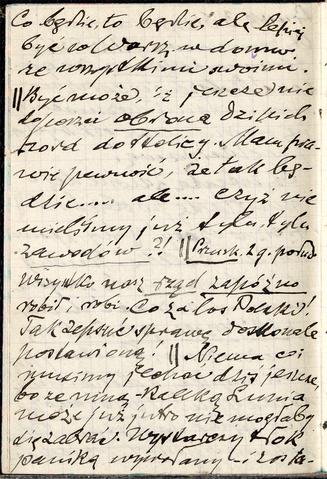 Co będzie, to będzie, ale lepiej
być w Warsz. w domu
ze wszystkimi swoimi.
|| Być może, iż jeszcze nie
dopuści obrona dzikich
hord do stolicy. Mam pra-
wie pewność, że tak bę-
dzie..... ale.... czyż nie
mieliśmy już tylu, tylu
zawodów?! || 2 g. połud.
Wszystko nasz rząd zapóźno
robił i robi. Co za los Polski!
Tak zepsuć sprawę doskonale
postawioną! || Niema co,
musimy jechać dziś jeszcze,
bo ze mną Lunia
może już jutro nie mogłaby
się zabrać. Wystarczy tłok
paniką wywołany i zosta-